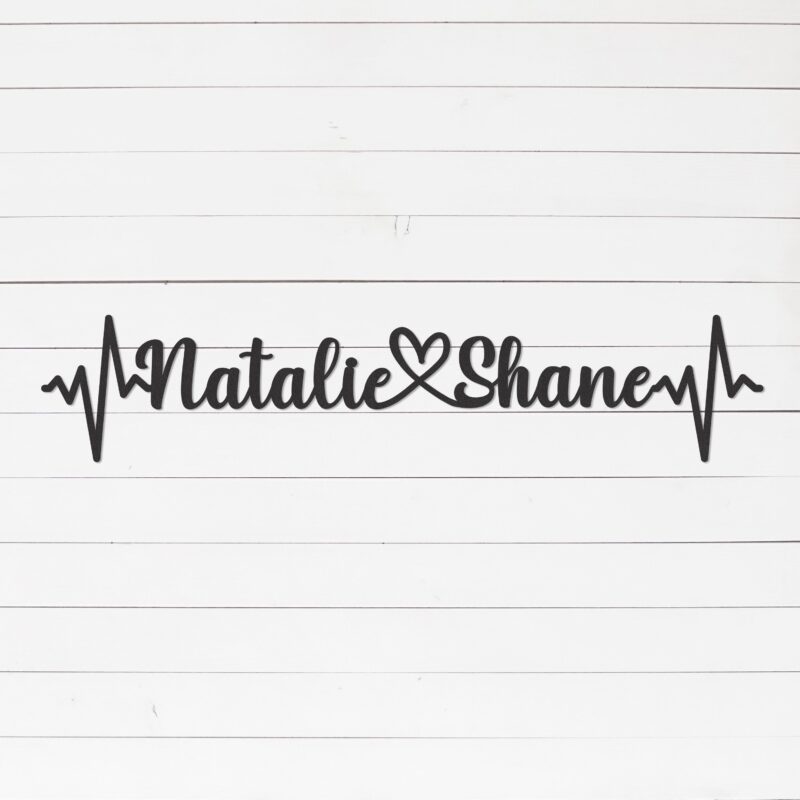 Natalie Shane